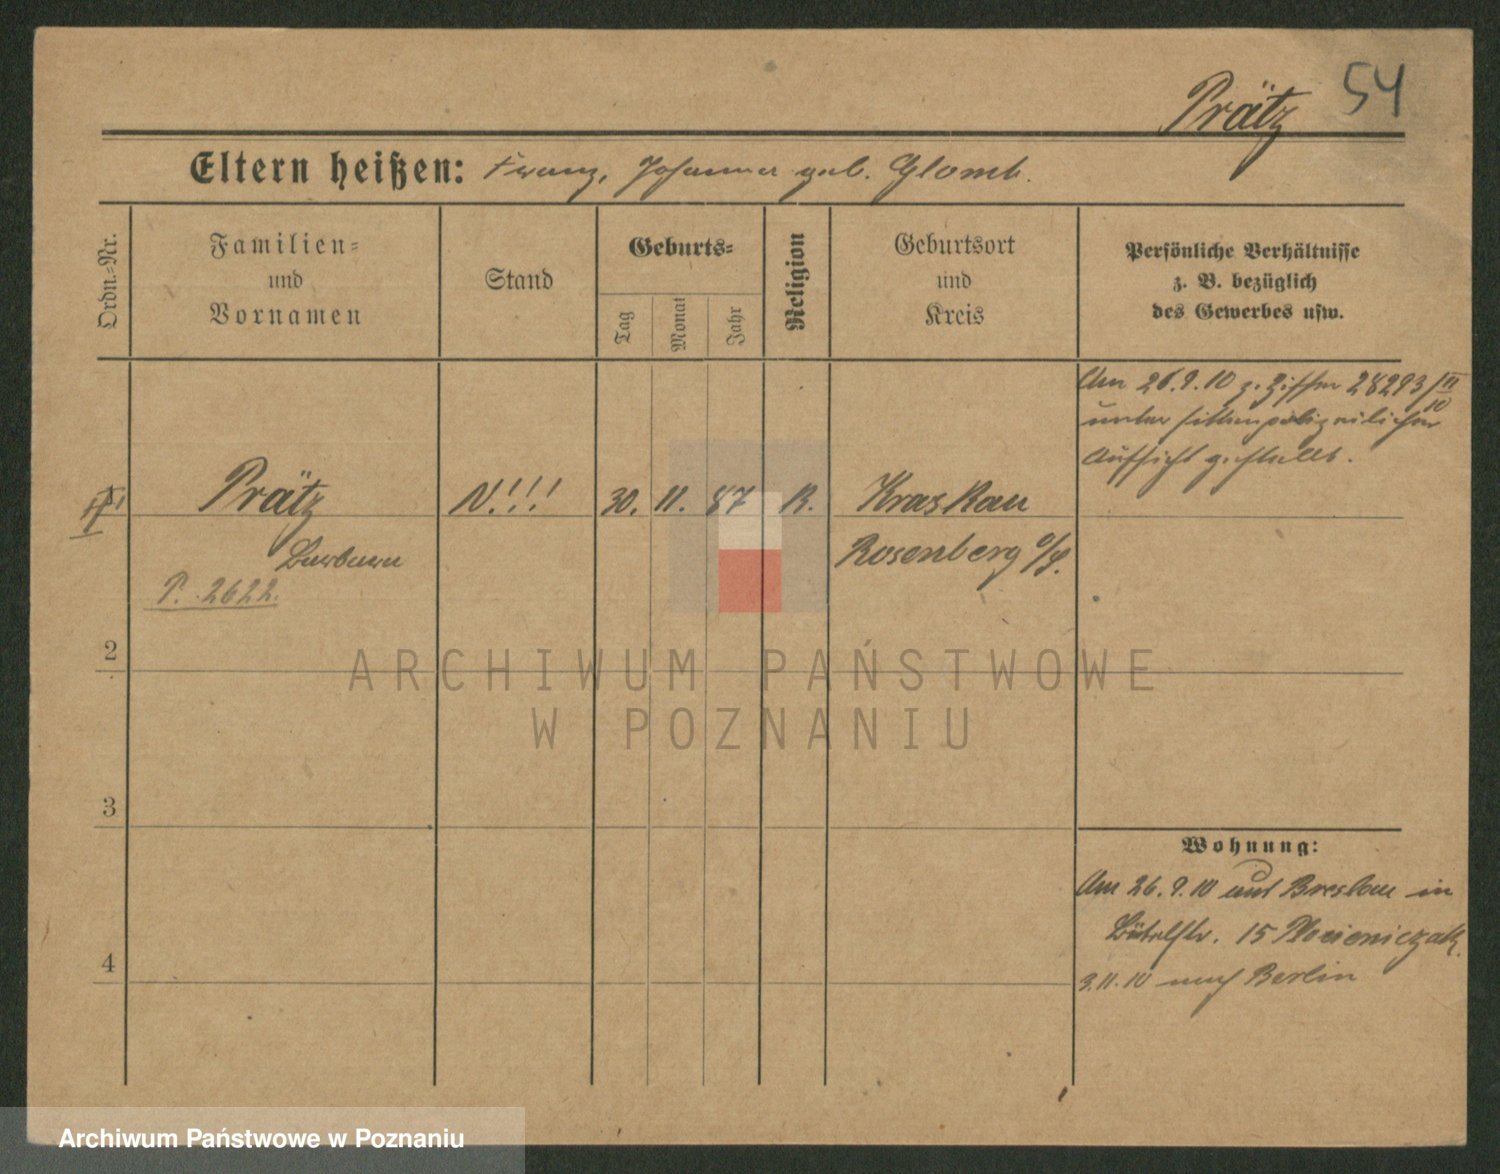 54
Prätz
Eltern heißen: Franz, Johanna geb. Glomb.
Ordn.-Nr.
Familien- und Vornamen
Stand
Geburts-
Tag
Monat
Jahr
Religion
Geburtsort und Kreis
Persönliche Verhältnisse
z. B. bezüglich
des Gewerbes usw.
Am 26.9.10 z. Ziffer 28293/VI 10
unter sittenpolizeilicher
Aufsicht gestellt.
Prätz N!!! 30. 11. 87 R. Kraskau
Barbara Rosenberg o/S.
P. 2622.
2
3
4
Wohnung:
Am 26.9.10 aus Breslau in
Büttelstr. 15 Plocieniczak.
3.11.10 nach Berlin
ARCHIWUM PAŃSTWOWE
W POZNANIU
Archiwum Państwowe w Poznaniu